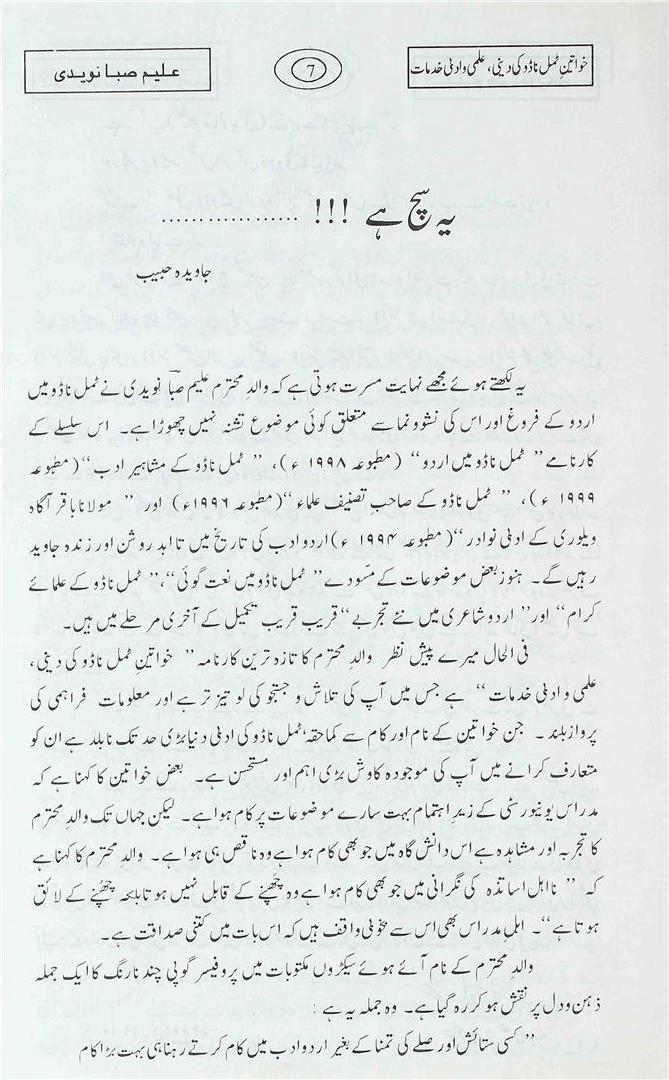 خواتینِ ٹمل ناڈو کی دینی، علمی و ادبی خدمات
7
علیم صبا نویدی
یہ سچ ہے !!! ................
جاویدہ حبیب
یہ لکھتے ہوئے مجھے نہایت مسرت ہوتی ہے کہ والدِ محترم علیم صبا نویدی نے ٹمل ناڈو میں
اردو کے فروغ اور اس کی نشوونما سے متعلق کوئی موضوع تشنہ نہیں چھوڑا ہے۔ اس سلسلے کے
کارنامے " ٹمل ناڈو میں اردو" (مطبوعہ ۱۹۹۸ ء)، " ٹمل ناڈو کے مشاہیر ادب" (مطبوعہ
۱۹۹۹ ء)، " ٹمل ناڈو کے صاحبِ تصنیف علماء" (مطبوعہ ۱۹۹۶ء) اور " مولانا باقر آگاہ
ویلوری کے ادبی نوادر" (مطبوعہ ۱۹۹۴ ء) اردو ادب کی تاریخ میں تا ابد روشن اور زندہ جاوید
رہیں گے۔ ہنوز بعض موضوعات کے مسّودے " ٹمل ناڈو میں نعت گوئی"، " ٹمل ناڈو کے علمائے
کرام" اور " اردو شاعری میں نئے تجربے" قریب قریب تکمیل کے آخری مرحلے میں ہیں۔
فی الحال میرے پیش نظر والدِ محترم کا تازہ ترین کارنامہ " خواتینِ ٹمل ناڈو کی دینی،
علمی و ادبی خدمات" ہے جس میں آپ کی تلاش و جستجو کی لو تیز تر ہے اور معلومات فراہمی کی
پرواز بلند۔ جن خواتین کے نام اور کام سے کماحقہ، ٹمل ناڈو کی ادبی دنیا بڑی حد تک نابلد ہے ان کو
متعارف کرانے میں آپ کی موجودہ کاوش بڑی اہم اور مستحسن ہے۔ بعض خواتین کا کہنا ہے کہ
مدراس یونیورسٹی کے زیرِ اہتمام بہت سارے موضوعات پر کام ہوا ہے۔ لیکن جہاں تک والدِ محترم
کا تجربہ اور مشاہدہ ہے اس دانش گاہ میں جو بھی کام ہوا ہے وہ ناقص ہی ہوا ہے۔ والدِ محترم کا کہنا ہے
کہ " نااہل اساتذہ کی نگرانی میں جو بھی کام ہوا ہے وہ چھپنے کے قابل نہیں ہوتا بلکہ چھپنے کے لائق
ہوتا ہے"۔ اہلِ مدراس بھی اس سے بخوبی واقف ہیں کہ اس بات میں کتنی صداقت ہے۔
والدِ محترم کے نام آئے ہوئے سیکڑوں مکتوبات میں پروفیسر گوپی چند نارنگ کا ایک جملہ
ذہن و دل پر نقش ہو کر رہ گیا ہے۔ وہ جملہ یہ ہے :
" کسی ستائش اور صلے کی تمنا کے بغیر اردو ادب میں کام کرتے رہنا ہی بہت بڑا کام